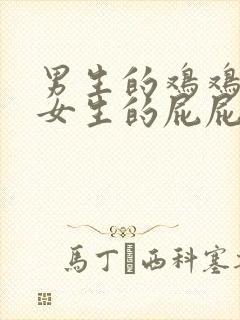 男生的鸡鸡
女生的屁屁
馬丁 西科塞